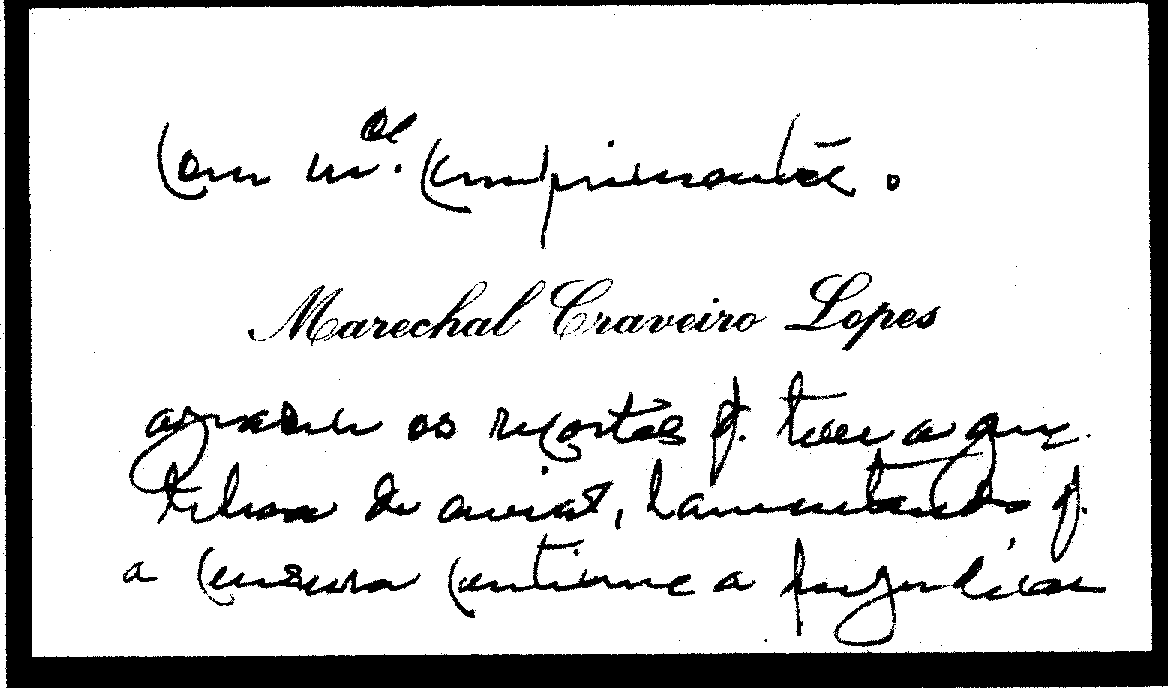 Com Cumprimentos o
Marechal Craveiro Lopes
agradece os recortes q. teve a gen-
tileza de enviar, lamentando q.
a Censura Continue a prejudicar